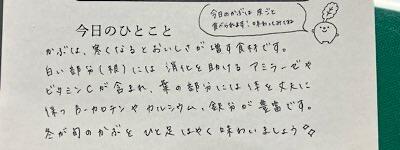 今日のひとこと
今日のかぶは皮ごと
食べられます！味わってみてね
かぶは、寒くなるとおいしさが増す食材です。
白い部分(根)には消化を助けるアミラーゼや
ビタミンCが含まれ、葉の部分には体を丈夫に
保つβ-カロテンやカルシウム、鉄分が豊富です。
冬が旬のかぶをひと足はやく味わいましょう